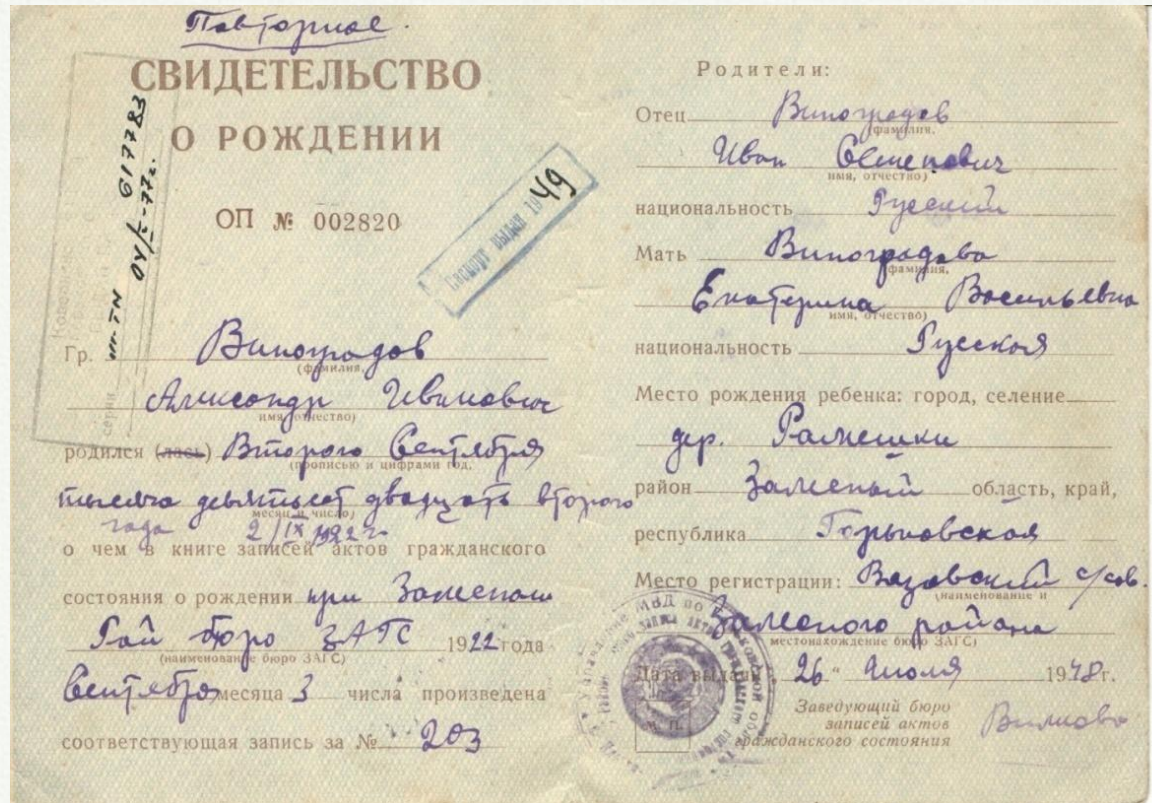 Повторное.
СВИДЕТЕЛЬСТВО
О РОЖДЕНИИ
ОП № 002820
серии
617783
04/I-77г.
Паспорт выдан 1949
Гр. Виноградов
(фамилия,
Александр Иванович
имя, отчество)
родился (лась) Второго Сентября
(прописью и цифрами год,
тысяча девятьсот двадцать второго
месяц и число)
года 2/IX 1922 г.
о чем в книге записей актов гражданского
состояния о рождении при
Рай бюро ЗАГС 1922 года
(наименование бюро ЗАГС)
Сентября месяца 3 числа произведена
соответствующая запись за № 203
Родители:
Отец Виноградов
(фамилия,
Иван Семенович
имя, отчество)
национальность Русский
Мать Виноградова
(фамилия,
Екатерина Васильевна
имя, отчество)
национальность Русская
Место рождения ребенка: город, селение
дер. Рамешки
район область, край,
республика Горьковская
Место регистрации: Вязовский с/сов.
(наименование и
района
местонахождение бюро ЗАГС)
Дата выдачи „26" Июля 1948 г.
М. П.
Заведующий бюро
записей актов
гражданского состояния